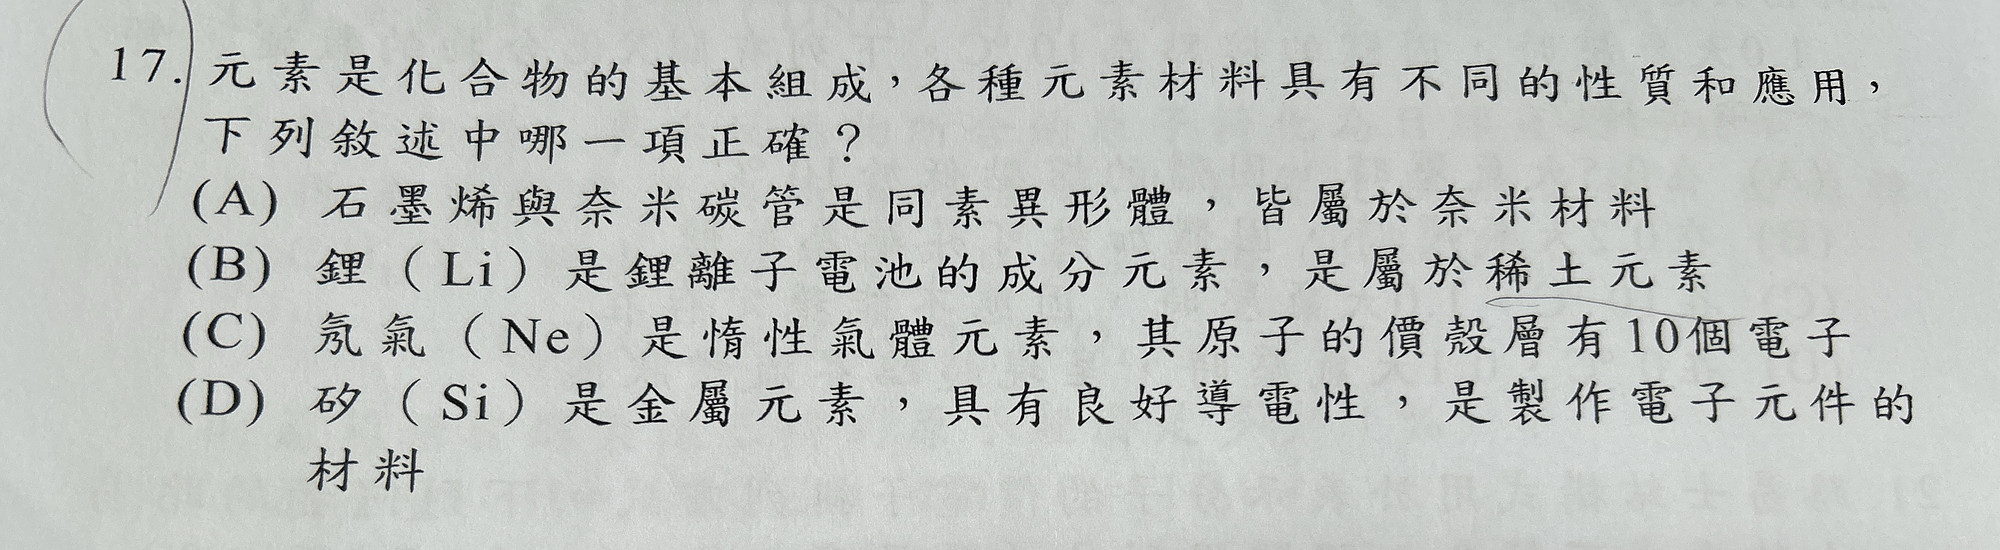 17. 元素是化合物的基本組成，各種元素材料具有不同的性質和應用，
下列敘述中哪一項正確？
(A) 石墨烯與奈米碳管是同素異形體，皆屬於奈米材料
(B) 鋰（Li）是鋰離子電池的成分元素，是屬於稀土元素
(C) 氖氣（Ne）是惰性氣體元素，其原子的價殼層有10個電子
(D) 矽（Si）是金屬元素，具有良好導電性，是製作電子元件的
材料